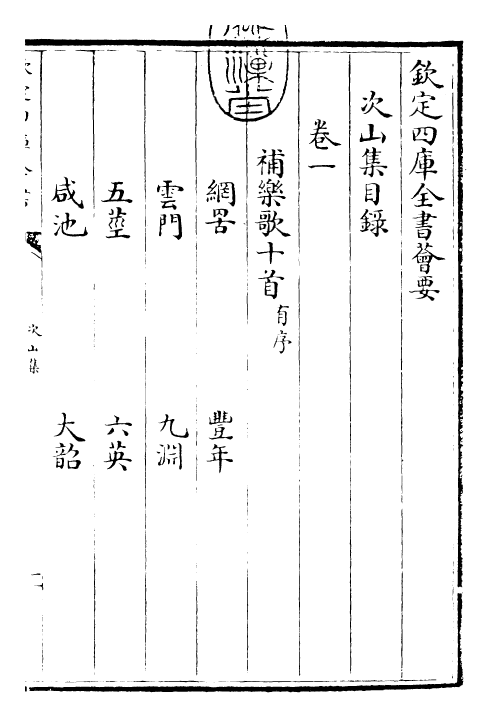 欽定四庫全書薈要
次山集目録
卷一
補樂歌十首有序
網罟 豐年
雲門 九淵
五莖 六英
咸池 大韶
次山集
一